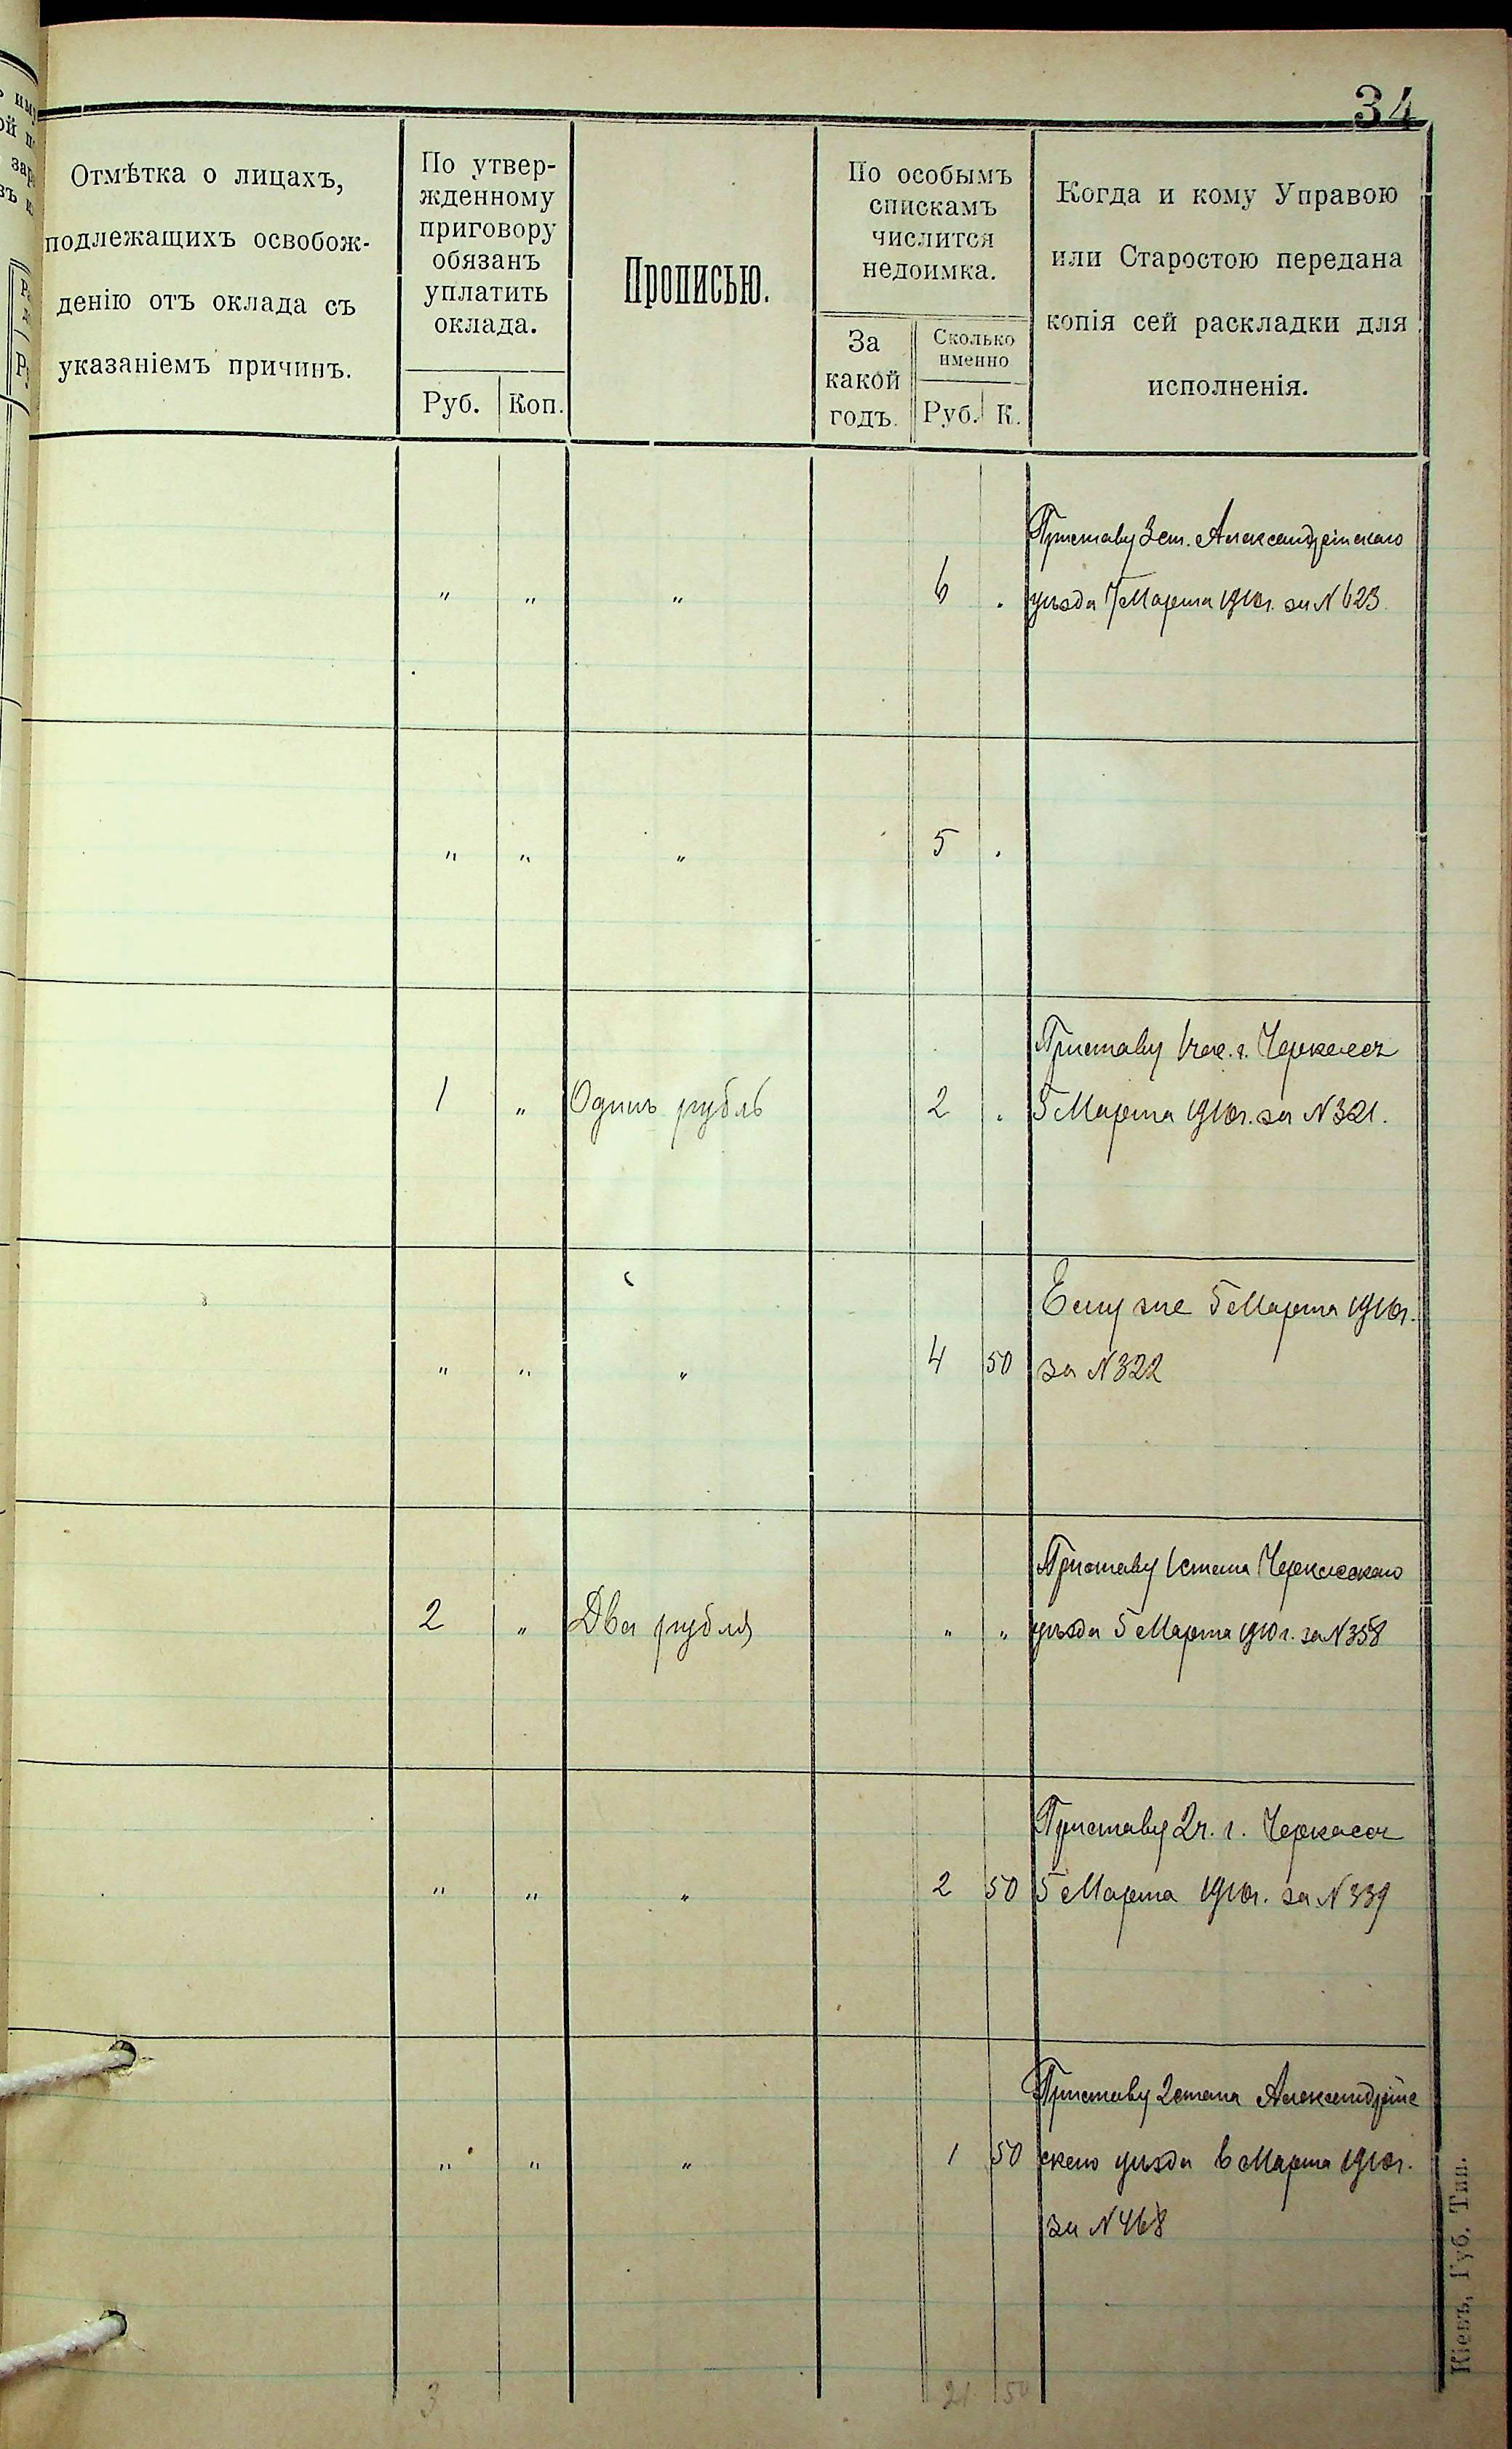 34
Отмѣтка о лицахъ,
подлежащихъ освобож-
денію отъ оклада съ
указаніемъ причинъ.
По утвер-
жденному
приговору
обязанъ
уплатить
оклада.
Руб. Коп.
Прописью.
По особымъ
спискамъ
числится
недоимка.
За
какой
годъ.
Сколько
именно
Руб. К.
Когда и кому Управою
или Старостою передана
копія сей раскладки для
исполненія.
Приставу 3 ст. Александрійскаго
" " " 6 . уѣзда 7 Марта 1910г. за N 623
" " " 5 .
Приставу 1 час. г. Черкассъ
1 " Одинъ рубль 2 . 5 Марта 1910г. за N 321.
Ему же 5 Марта 1910г.
" " " 4 50 за N 322
Приставу 1 стана Черкасскаго
2 " Два рубля " " уѣзда 5 Марта 1910 г. за N 358
Приставу 2 ч. г. Черкассъ
" " " 2 50 5 Марта 1910г. за N 339
Приставу 2 стана Александрій
" " " 1 50 скаго уѣзда 6 Марта 1910г.
за N 468
3 21 50
Кіевъ, Губ. Тип.